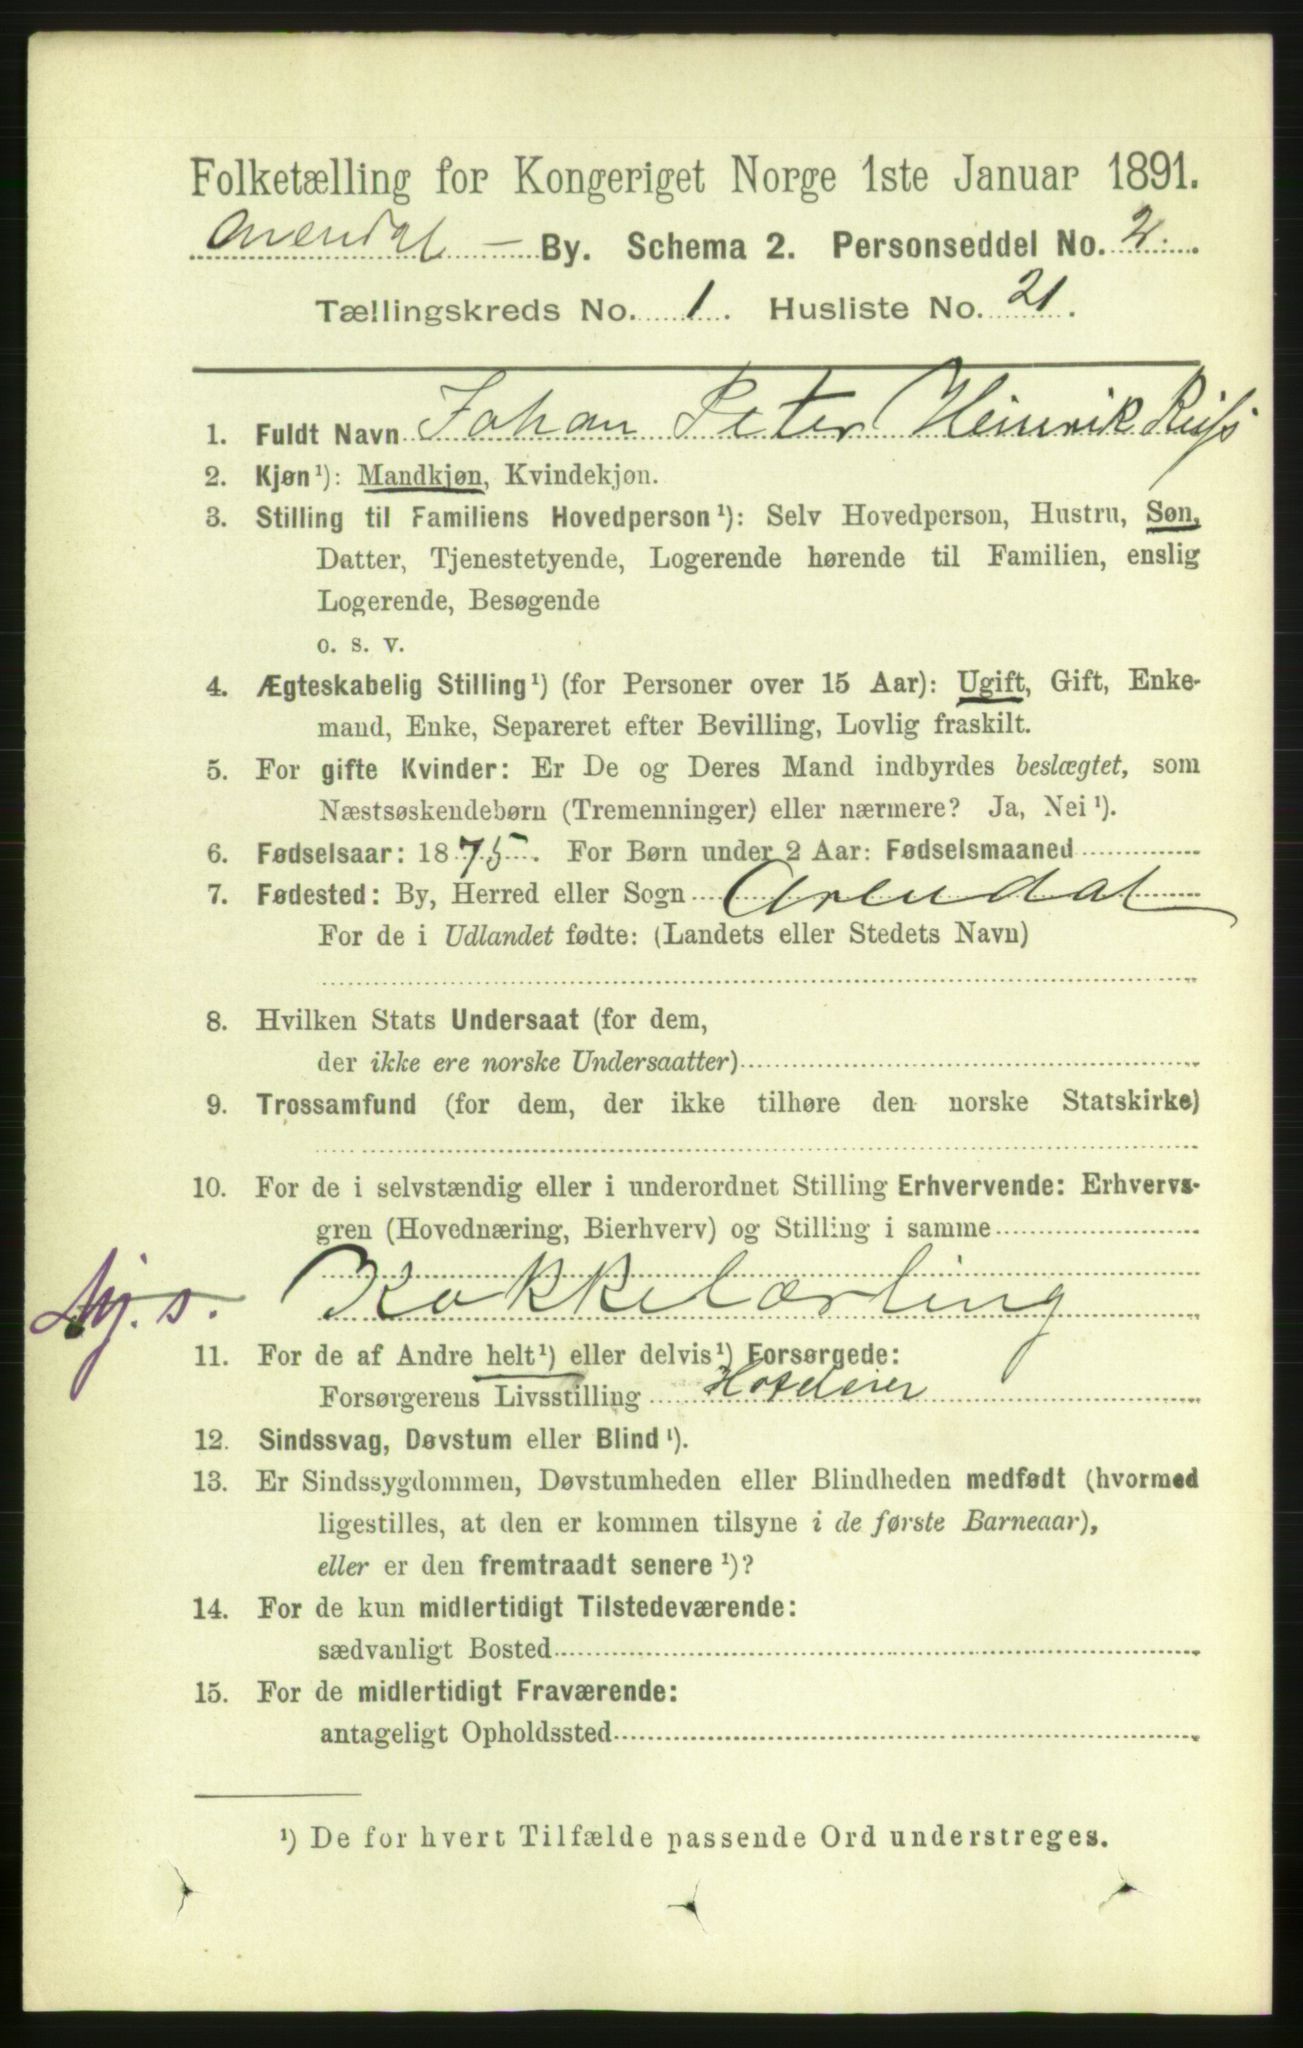 Folketælling for Kongeriget Norge 1ste Januar 1891.
Arendal — By. Schema 2. Personseddel No. 2.
Tællingskreds No. 1. Husliste No. 21.
1. Fuldt Navn Johan Peter Heinrik
2. Kjøn ¹): Mandkjøn, Kvindekjøn.
3. Stilling til Familiens Hovedperson ¹): Selv Hovedperson, Hustru, Søn,
Datter, Tjenestetyende, Logerende hørende til Familien, enslig
Logerende, Besøgende
o. s. v.
4. Ægteskabelig Stilling ¹) (for Personer over 15 Aar): Ugift, Gift, Enke-
mand, Enke, Separeret efter Bevilling, Lovlig fraskilt.
5. For gifte Kvinder: Er De og Deres Mand indbyrdes beslægtet, som
Næstsøskendebørn (Tremenninger) eller nærmere? Ja, Nei ¹).
6. Fødselsaar: 1875. For Børn under 2 Aar: Fødselsmaaned
7. Fødested: By, Herred eller Sogn Arendal
For de i Udlandet fødte: (Landets eller Stedets Navn)
8. Hvilken Stats Undersaat (for dem,
der ikke ere norske Undersaatter)
9. Trossamfund (for dem, der ikke tilhøre den norske Statskirke)
10. For de i selvstændig eller i underordnet Stilling Erhvervende: Erhvervs-
gren (Hovednæring, Bierhverv) og Stilling i samme
Kokkelærling
11. For de af Andre helt ¹) eller delvis ¹) Forsørgede:
Forsørgerens Livsstilling Hoteleier
12. Sindssvag, Døvstum eller Blind ¹).
13. Er Sindssygdommen, Døvstumheden eller Blindheden medfødt (hvormed
ligestilles, at den er kommen tilsyne i de første Barneaar),
eller er den fremtraadt senere ¹)?
14. For de kun midlertidigt Tilstedeværende:
sædvanligt Bosted
15. For de midlertidigt Fraværende:
antageligt Opholdssted
¹) De for hvert Tilfælde passende Ord understreges.